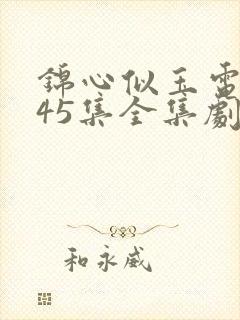 錦心似玉電
45集全集劇
和永威